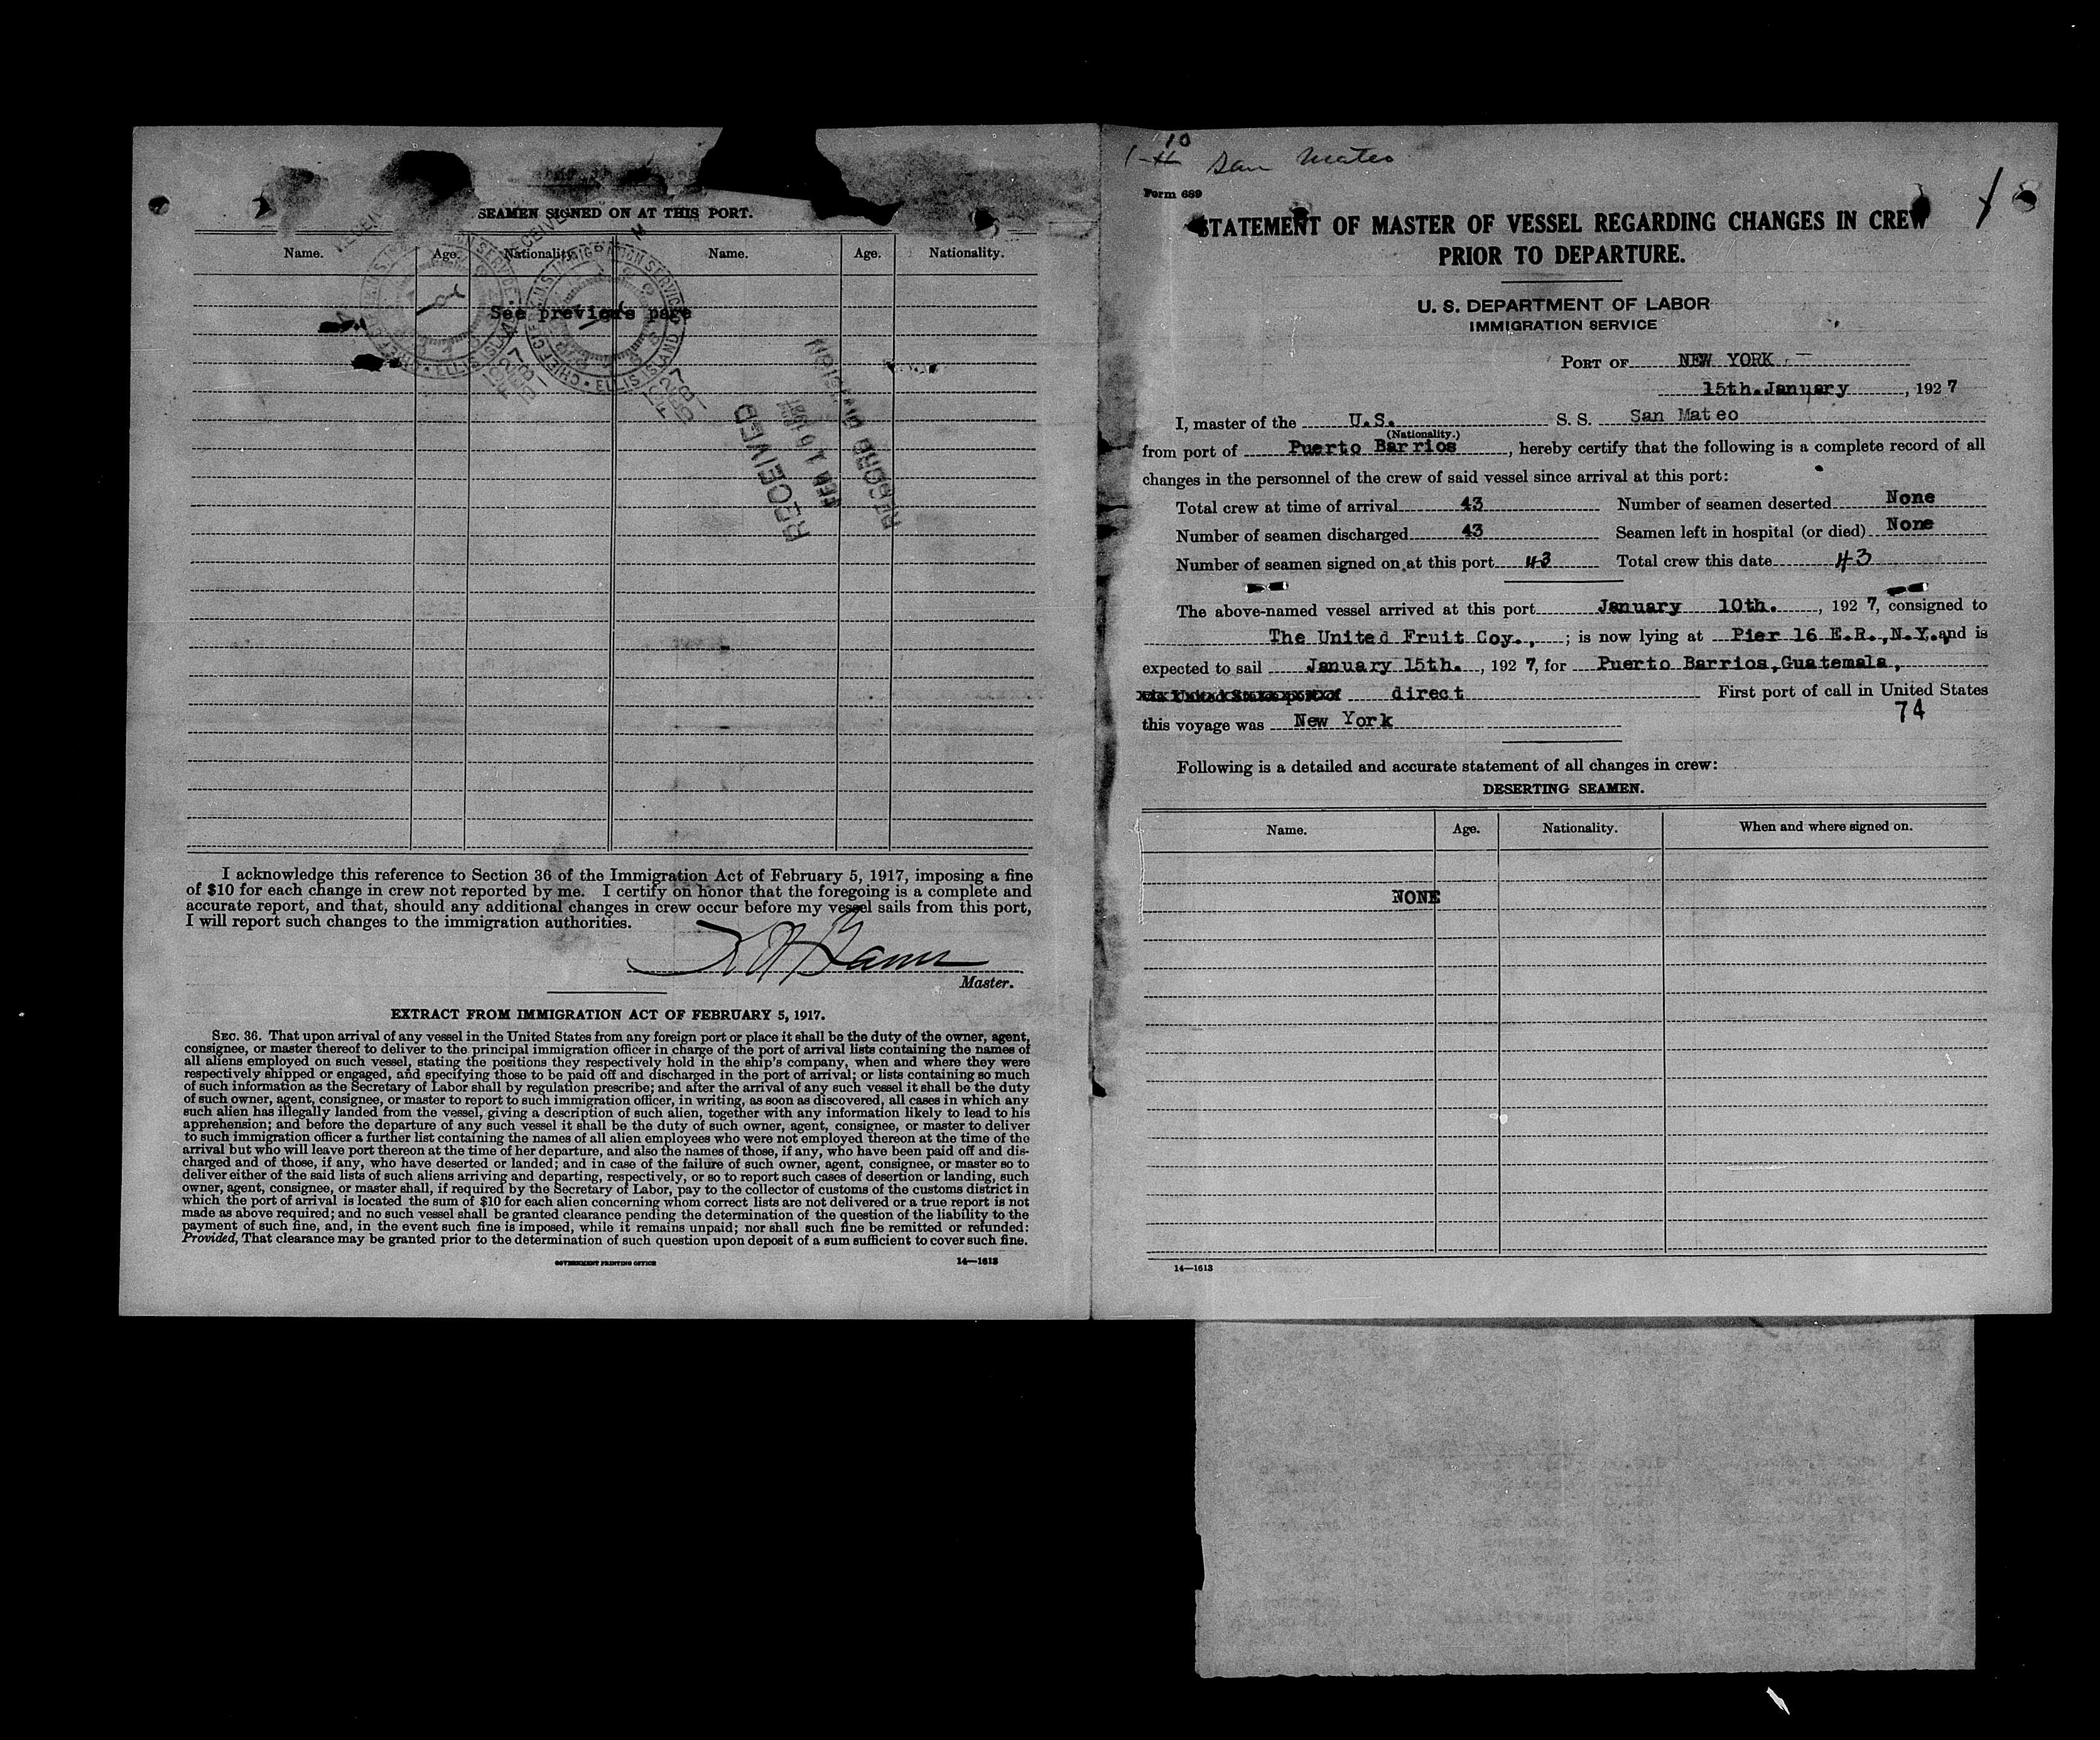 SEAMEN SIGNED ON AT THIS PORT.
Name. Age. Nationality. Name. Age. Nationality.
See previous page
RECEIVED
RECORD DIVISION
I acknowledge this reference to Section 36 of the Immigration Act of February 5, 1917, imposing a fine
of $10 for each change in crew not reported by me. I certify on honor that the foregoing is a complete and
accurate report, and that, should any additional changes in crew occur before my vessel sails from this port,
I will report such changes to the immigration authorities.
Master.
EXTRACT FROM IMMIGRATION ACT OF FEBRUARY 5, 1917.
SEC. 36. That upon arrival of any vessel in the United States from any foreign port or place it shall be the duty of the owner, agent,
consignee, or master thereof to deliver to the principal immigration officer in charge of the port of arrival lists containing the names of
all aliens employed on such vessel, stating the positions they respectively hold in the ship's company, when and where they were
respectively shipped or engaged, and specifying those to be paid off and discharged in the port of arrival; or lists containing so much
of such information as the Secretary of Labor shall by regulation prescribe; and after the arrival of any such vessel it shall be the duty
of such owner, agent, consignee, or master to report to such immigration officer, in writing, as soon as discovered, all cases in which any
such alien has illegally landed from the vessel, giving a description of such alien, together with any information likely to lead to his
apprehension; and before the departure of any such vessel it shall be the duty of such owner, agent, consignee, or master to deliver
to such immigration officer a further list containing the names of all alien employees who were not employed thereon at the time of the
arrival but who will leave port thereon at the time of her departure, and also the names of those, if any, who have been paid off and dis-
charged and of those, if any, who have deserted or landed; and in case of the failure of such owner, agent, consignee, or master so to
deliver either of the said lists of such aliens arriving and departing, respectively, or so to report such cases of desertion or landing, such
owner, agent, consignee, or master shall, if required by the Secretary of Labor, pay to the collector of customs of the customs district in
which the port of arrival is located the sum of $10 for each alien concerning whom correct lists are not delivered or a true report is not
made as above required; and no such vessel shall be granted clearance pending the determination of the question of the liability to the
payment of such fine, and, in the event such fine is imposed, while it remains unpaid; nor shall such fine be remitted or refunded:
Provided, That clearance may be granted prior to the determination of such question upon deposit of a sum sufficient to cover such fine.
GOVERNMENT PRINTING OFFICE 14—1613
10
San Mateo
Form 689
STATEMENT OF MASTER OF VESSEL REGARDING CHANGES IN CREW
PRIOR TO DEPARTURE.
U. S. DEPARTMENT OF LABOR
IMMIGRATION SERVICE
PORT OF NEW YORK
15th. January, 1927
I, master of the U.S. S. S. San Mateo
(Nationality.)
from port of Puerto Barrios, hereby certify that the following is a complete record of all
changes in the personnel of the crew of said vessel since arrival at this port:
Total crew at time of arrival 43 Number of seamen deserted None
Number of seamen discharged 43 Seamen left in hospital (or died) None
Number of seamen signed on at this port 43 Total crew this date 43
The above-named vessel arrived at this port January 10th., 1927, consigned to
The United Fruit Coy.,; is now lying at Pier 16 E.R.,N.Y. and is
expected to sail January 15th., 1927, for Puerto Barrios,Guatemala,
via United States port of direct First port of call in United States
74
this voyage was New York
Following is a detailed and accurate statement of all changes in crew:
DESERTING SEAMEN.
Name. Age. Nationality. When and where signed on.
NONE
14—1613